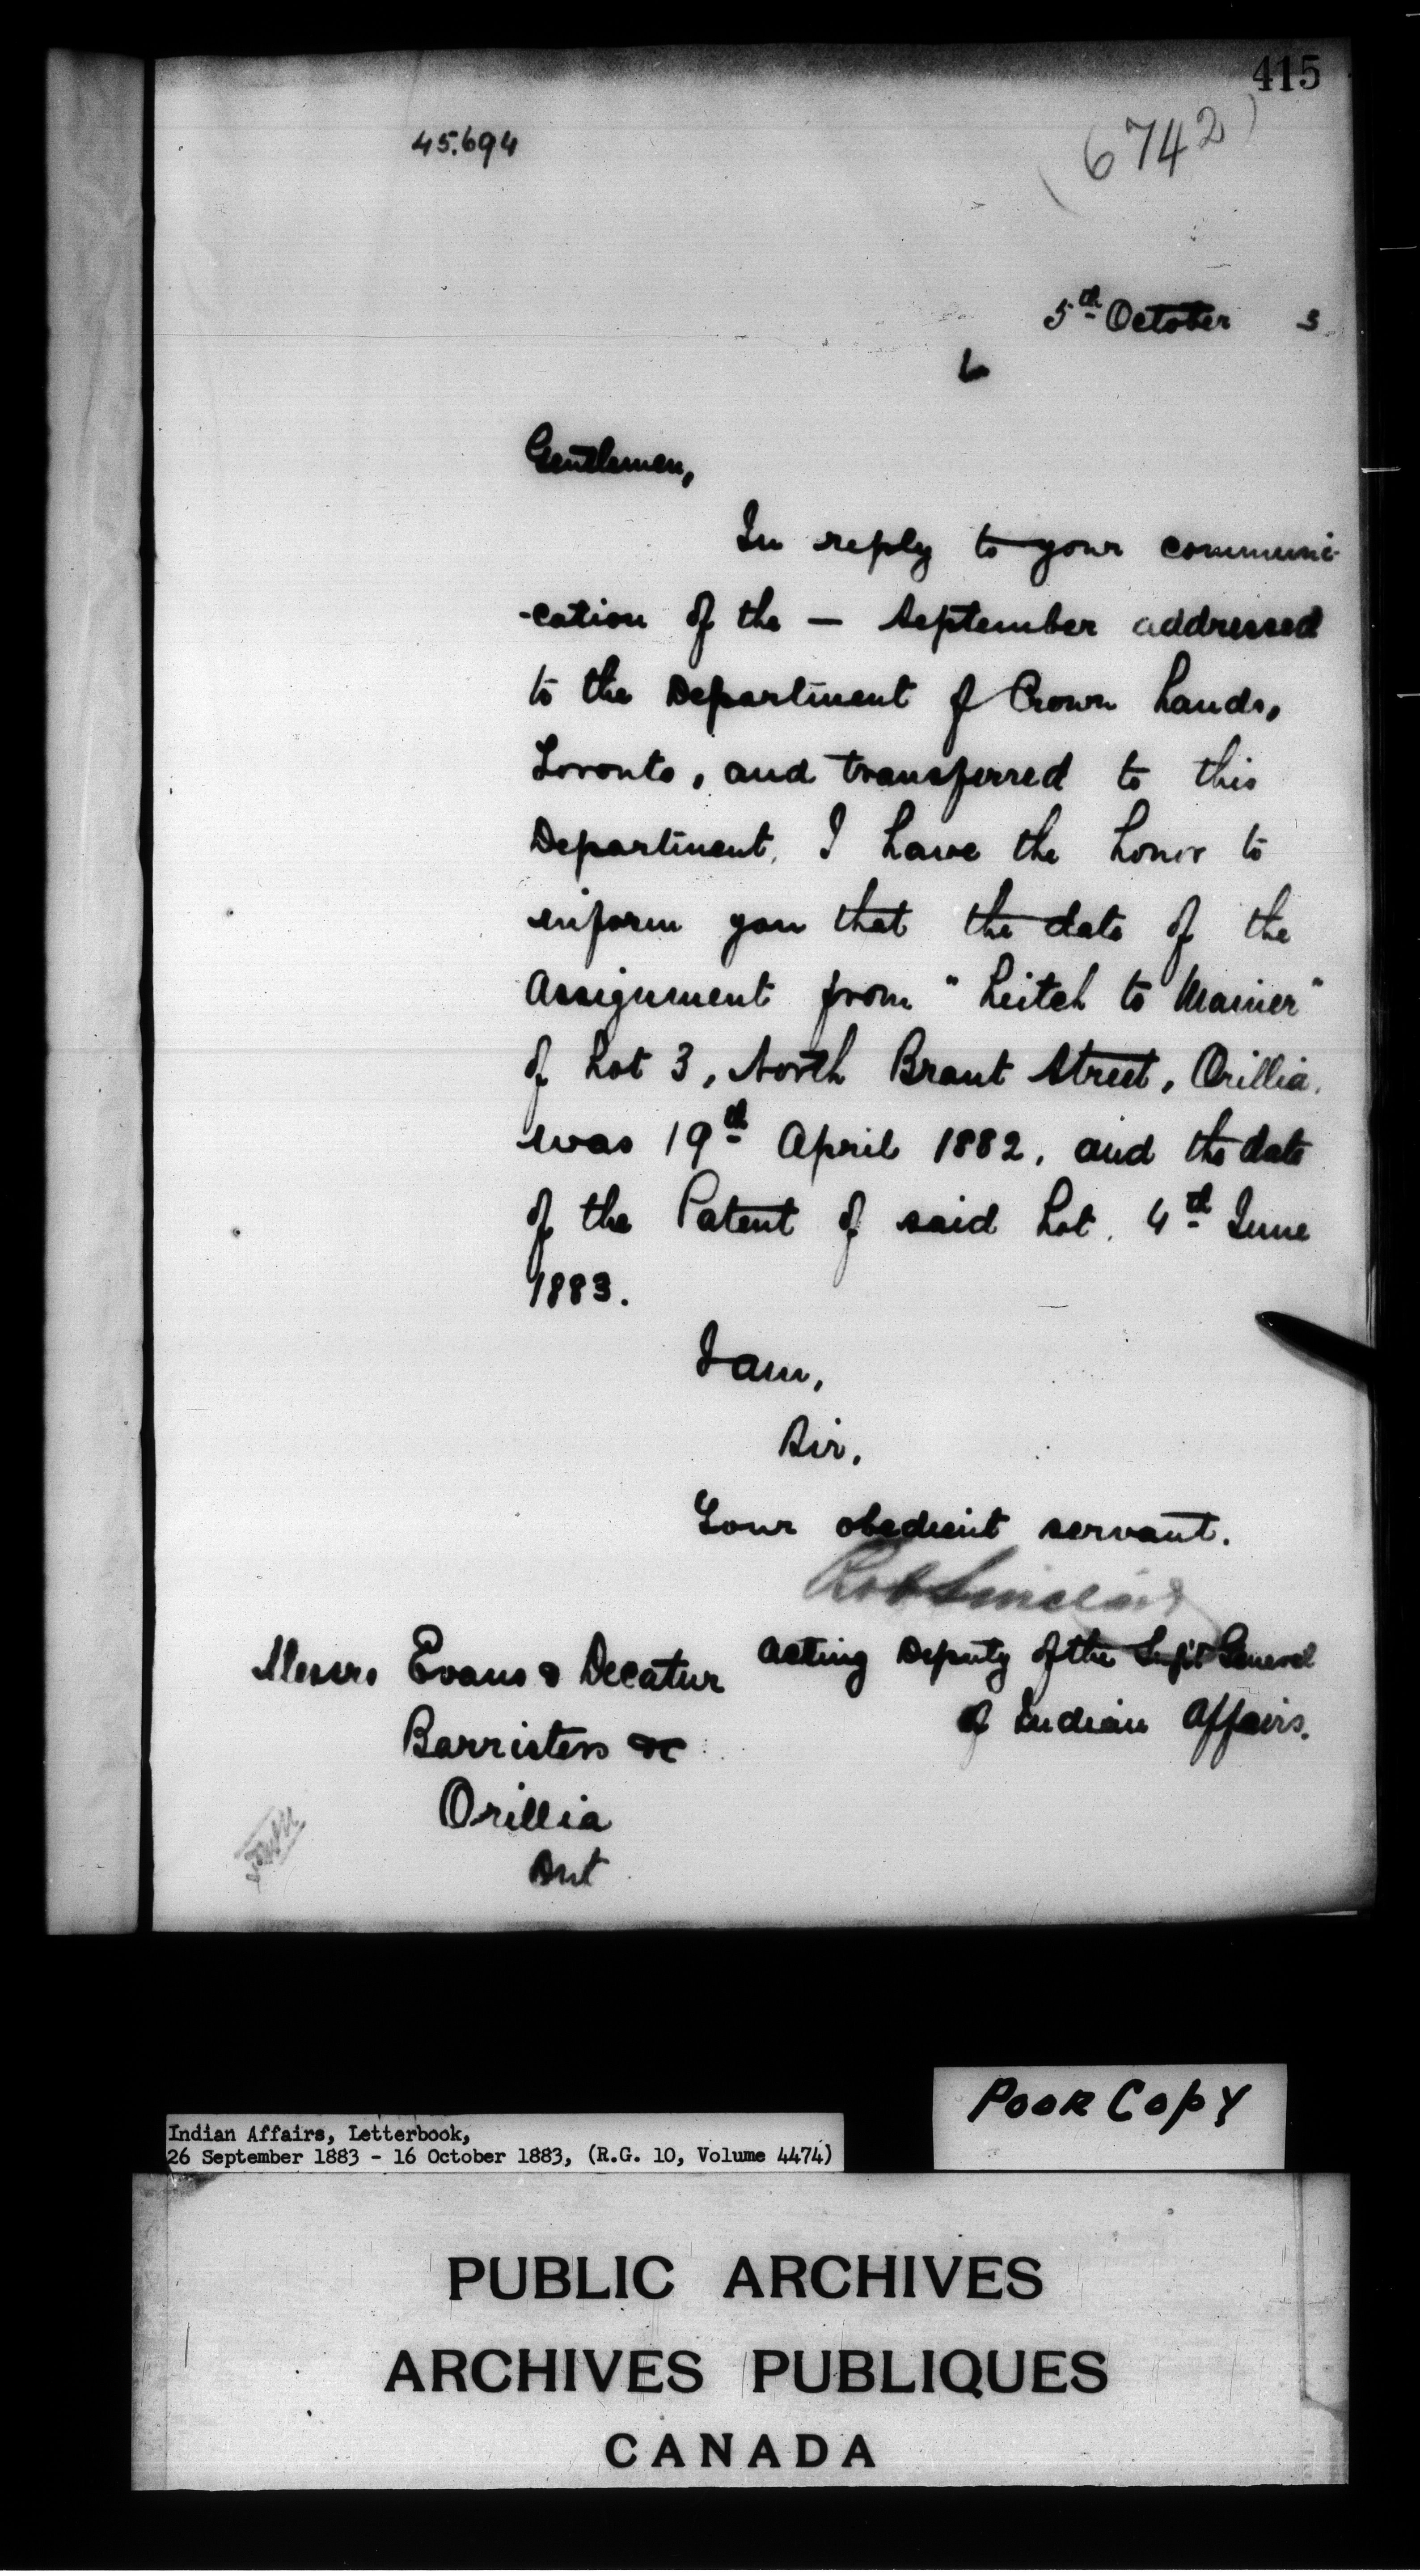 415
45.694
(6742)
5th October 3
Gentlemen,
In reply to your communi-
-cation of the — September addressed
to the Department of Crown Lands,
Toronto, and transferred to this
Department, I have the honor to
inform you that the date of the
Assignment from "Leitch to Mainer"
of Lot 3, North Brant Street, Orillia,
was 19th April 1882, and the date
of the Patent of said Lot, 4th June
1883.
I am,
Sir,
Your obedient servant.
Rob Sinclair
Acting Deputy of the Supt General
of Indian Affairs.
Messrs Evans & Decatur
Barristers &c
Orillia
Ont
POOR COPY
Indian Affairs, Letterbook,
26 September 1883 - 16 October 1883, (R.G. 10, Volume 4474)
PUBLIC ARCHIVES
ARCHIVES PUBLIQUES
CANADA